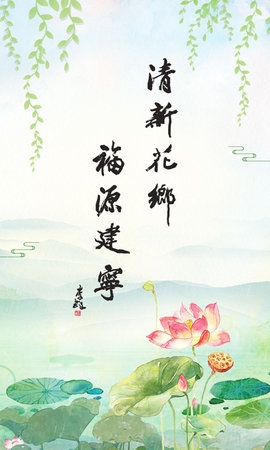 清新花鄉
福源建寧